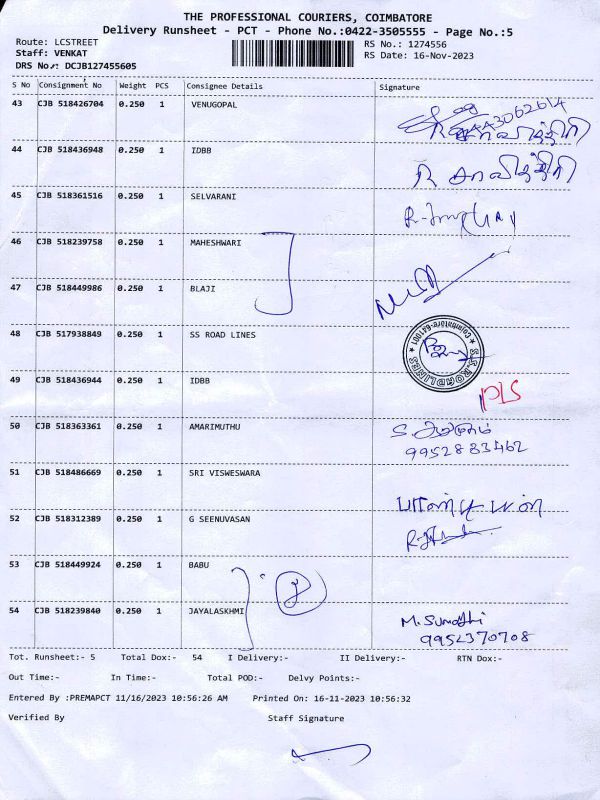 THE PROFESSIONAL COURIERS, COIMBATORE
Delivery Runsheet - PCT - Phone No.:0422-3505555 - Page No.:5
Route: LCSTREET
RS No.: 1274556
Staff: VENKAT
RS Date: 16-Nov-2023
DRS No.: DCJB127455605
S No Consignment No Weight PCS Consignee Details Signature
43 CJB 518426704 0.250 1 VENUGOPAL
44 CJB 518436948 0.250 1 IDBB
R சாவித்திரி
45 CJB 518361516 0.250 1 SELVARANI
46 CJB 518239758 0.250 1 MAHESHWARI
47 CJB 518449986 0.250 1 BLAJI
48 CJB 517938849 0.250 1 SS ROAD LINES
S.S.ROADLINES Coimbatore-641001
49 CJB 518436944 0.250 1 IDBB
PLS
50 CJB 518363361 0.250 1 AMARIMUTHU
9952883462
51 CJB 518486669 0.250 1 SRI VISWESWARA
52 CJB 518312389 0.250 1 G SEENUVASAN
53 CJB 518449924 0.250 1 BABU
54 CJB 518239840 0.250 1 JAYALASKHMI
M. Sumathi
9952370708
Tot. Runsheet:- 5 Total Dox:- 54 I Delivery:- II Delivery:- RTN Dox:-
Out Time:- In Time:- Total POD:- Delvy Points:-
Entered By :PREMAPCT 11/16/2023 10:56:26 AM Printed On: 16-11-2023 10:56:32
Verified By Staff Signature